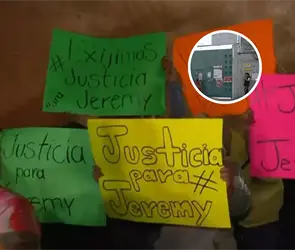 #Exijimos
Justicia
para
Jeremy
Justicia
para
Jeremy
Justicia
para #
Jeremy
J
Je